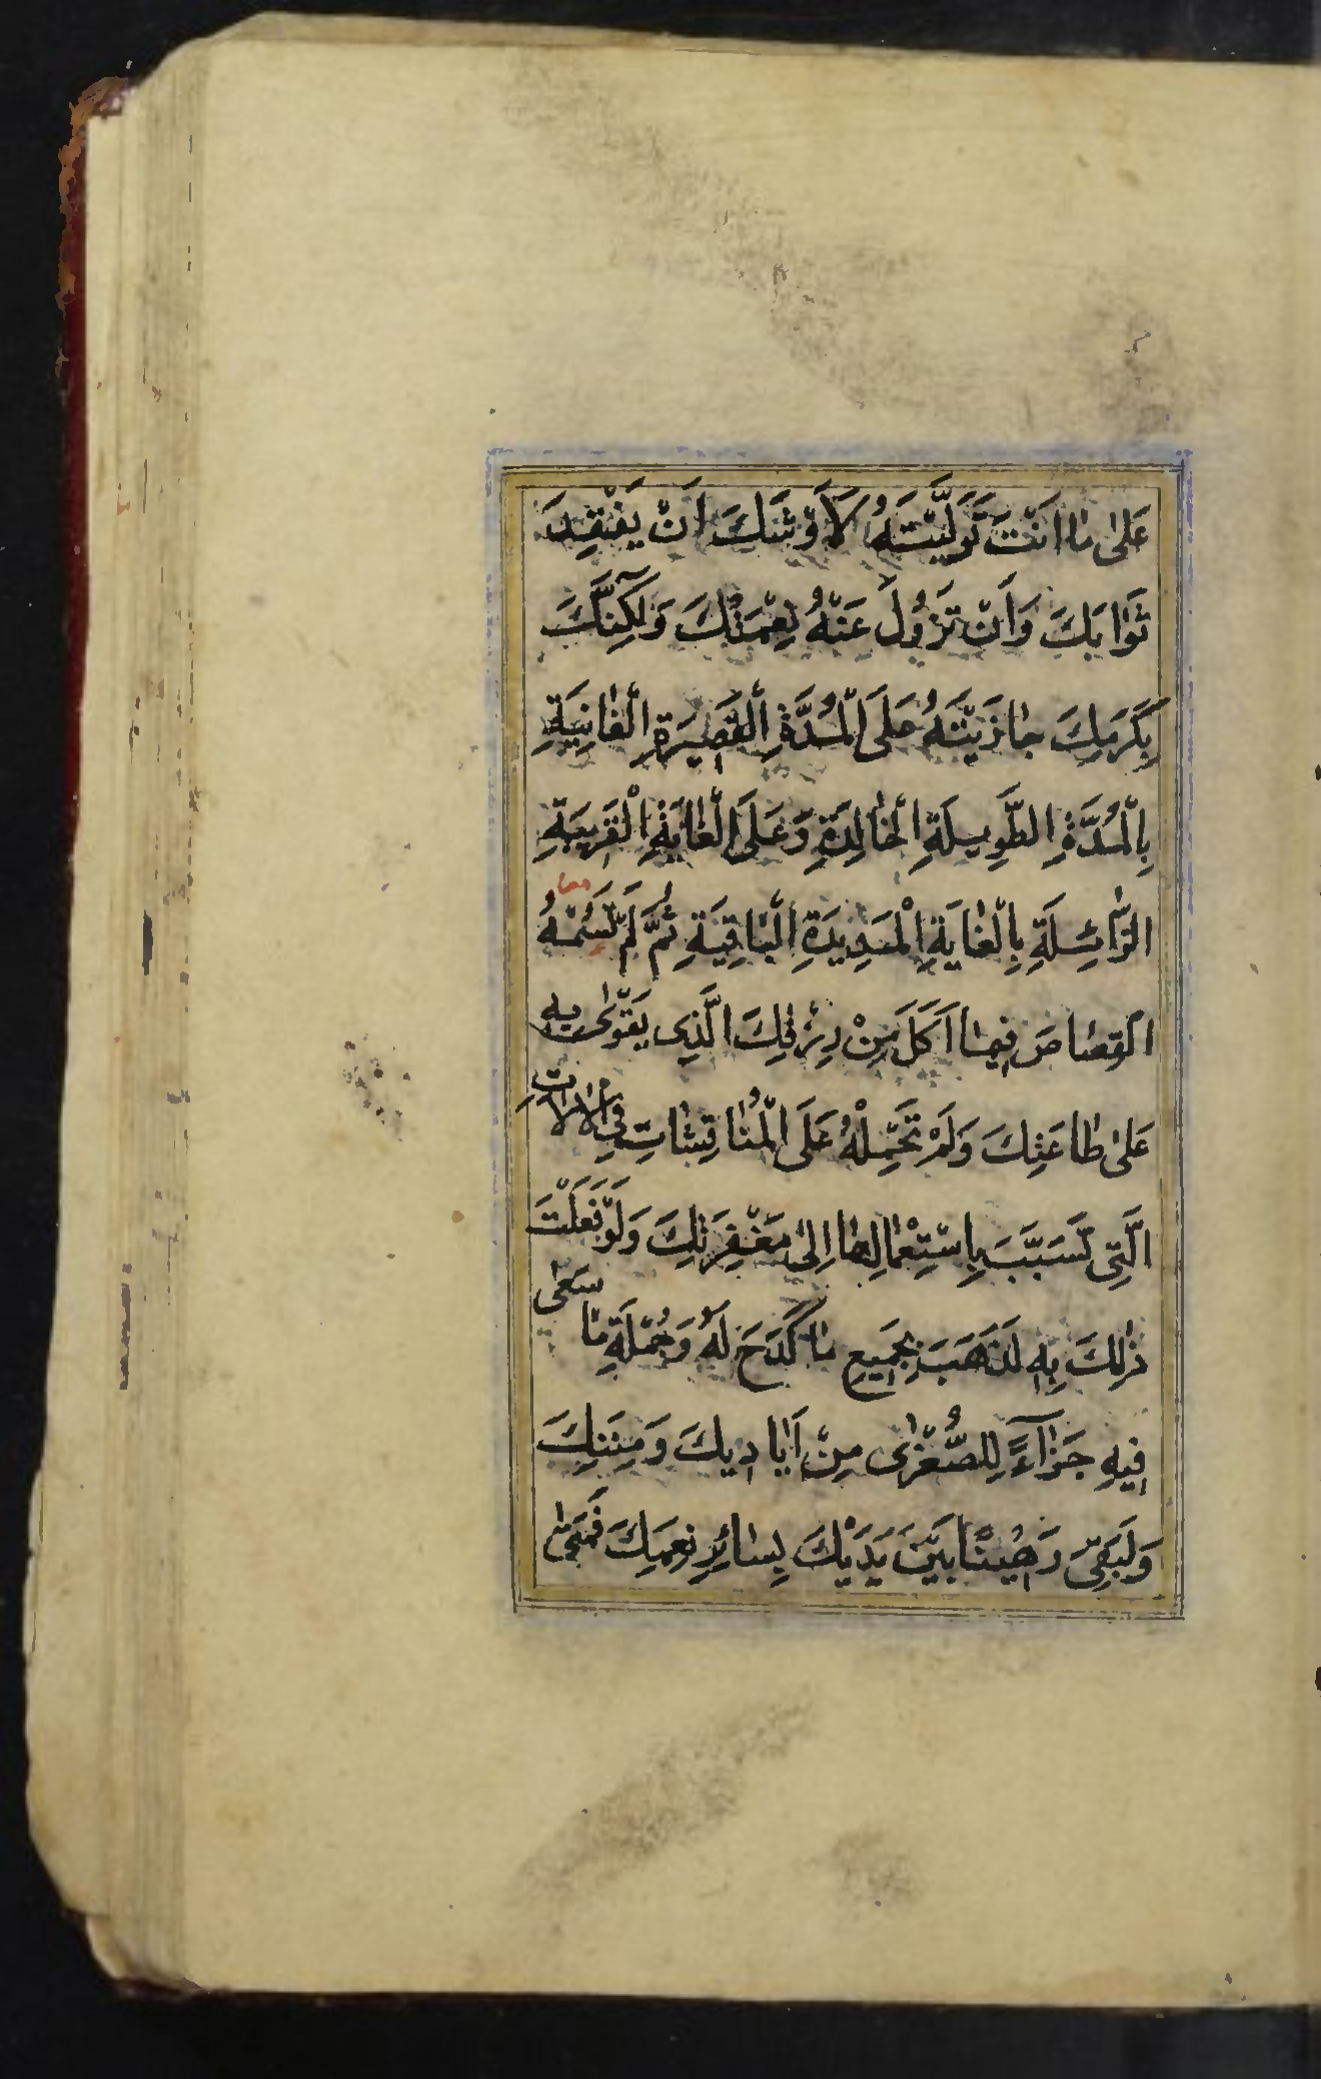 عَلىٰ مٰا اَنْتَ تَوَلَّيْتَهُ لَاَوْشَكَ اَنْ يَفْقِدَ
ثَوٰابَكَ وَاَنْ تَزُولَ عَنْهُ نِعْمَتُكَ وَلٰكِنَّكَ
بِكَرَمِكَ جٰازَيْتَهُ عَلَى الْمُدَّةِ الْقَصِيرَةِ الْفٰانِيَةِ
بِالْمُدَّةِ الطَّوِيلَةِ الْخٰالِدَةِ وَعَلَى الْغٰايَةِ الْقَرِيبَةِ
الزّٰائِلَةِ بِالْغٰايَةِ الْمَدِيدَةِ الْبٰاقِيَةِ ثُمَّ لَمْ تَسُمْهُ
معا
الْقِصٰاصَ فِيمٰا اَكَلَ مِنْ رِزْقِكَ الَّذِى يَقْوٰى بِهِ
عَلىٰ طٰاعَتِكَ وَلَمْ تَحْمِلْهُ عَلَى الْمُنٰاقَشٰاتِ فِى الْاٰلاٰتِ
الَّتِى تَسَبَّبَ بِاسْتِعْمٰالِهٰا اِلىٰ مَغْفِرَتِكَ وَلَوْ فَعَلْتَ
ذٰلِكَ بِهِ لَذَهَبَ بِجَمِيعِ مٰا كَدَحَ لَهُ وَجُمْلَةِ مٰا سَعٰى
فِيهِ جَزٰآءً لِلصُّغْرٰى مِنْ اَيٰادِيكَ وَمِنَنِكَ
وَلَبَقِىَ رَهِينًا بَيْنَ يَدَيْكَ بِسٰائِرِ نِعَمِكَ فَمَتىٰ